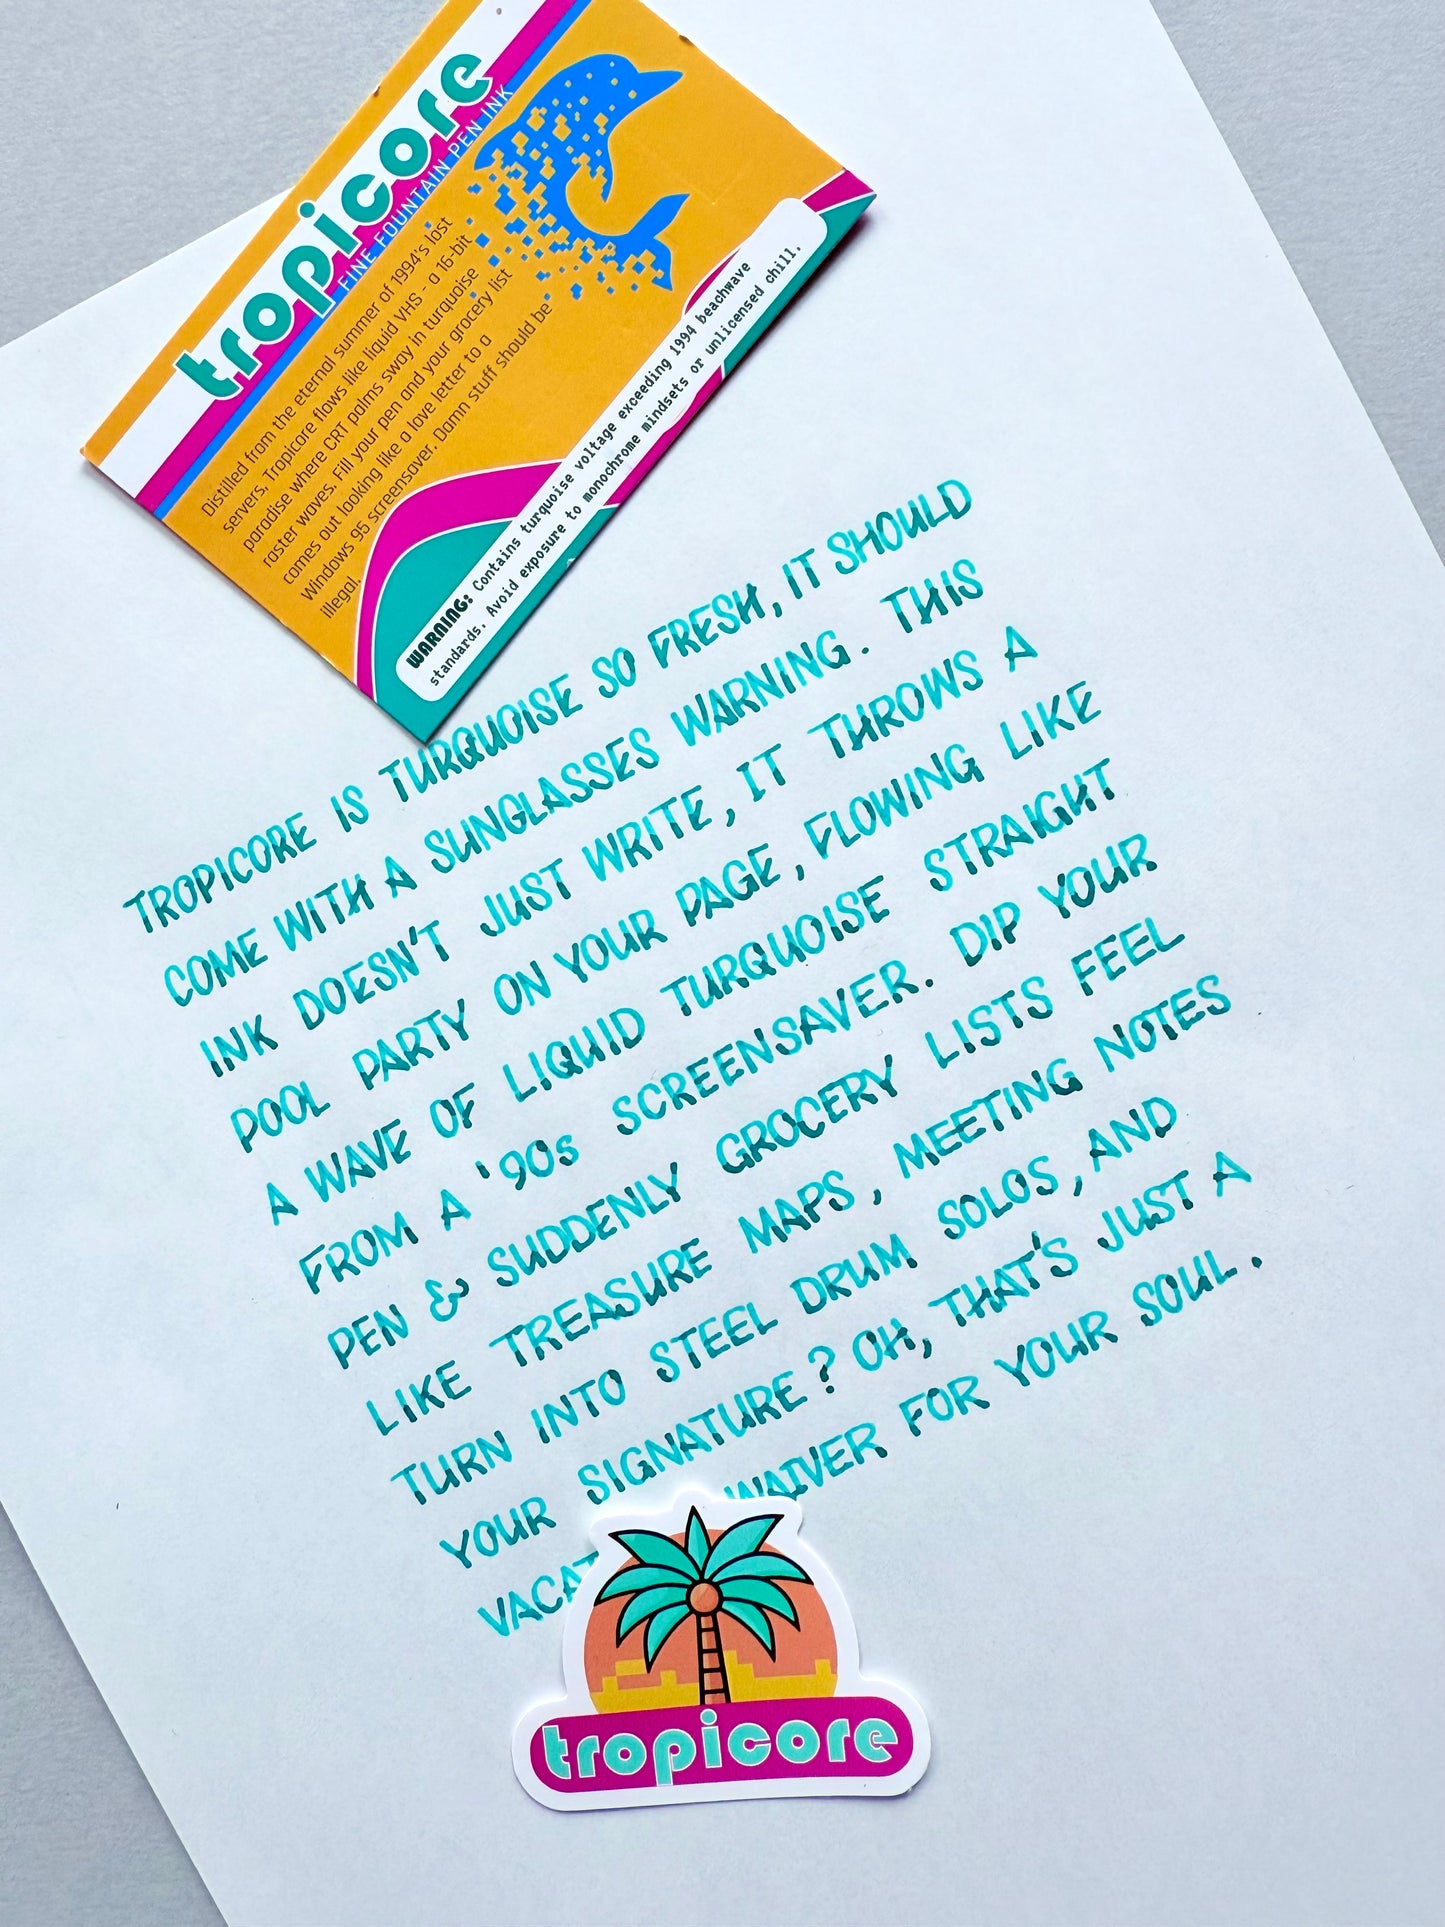 tropicore
FINE FOUNTAIN PEN INK
Distilled from the eternal summer of 1994's lost
servers, Tropicore flows like liquid VHS - a 16-bit
paradise where CRT palms sway in turquoise
raster waves. Fill your pen and your grocery list
comes out looking like a love letter to a
Windows 95 screensaver. Damn stuff should be
illegal.
WARNING: Contains turquoise voltage exceeding 1994 beachwave
standards. Avoid exposure to monochrome mindsets or unlicensed chill.
TROPICORE IS TURQUOISE SO FRESH, IT SHOULD
COME WITH A SUNGLASSES WARNING. THIS
INK DOESN'T JUST WRITE, IT THROWS A
POOL PARTY ON YOUR PAGE, FLOWING LIKE
A WAVE OF LIQUID TURQUOISE STRAIGHT
FROM A '90s SCREENSAVER. DIP YOUR
PEN & SUDDENLY GROCERY LISTS FEEL
LIKE TREASURE MAPS, MEETING NOTES
TURN INTO STEEL DRUM SOLOS, AND
YOUR SIGNATURE? OH, THAT'S JUST A
WAIVER FOR YOUR SOUL.
tropicore